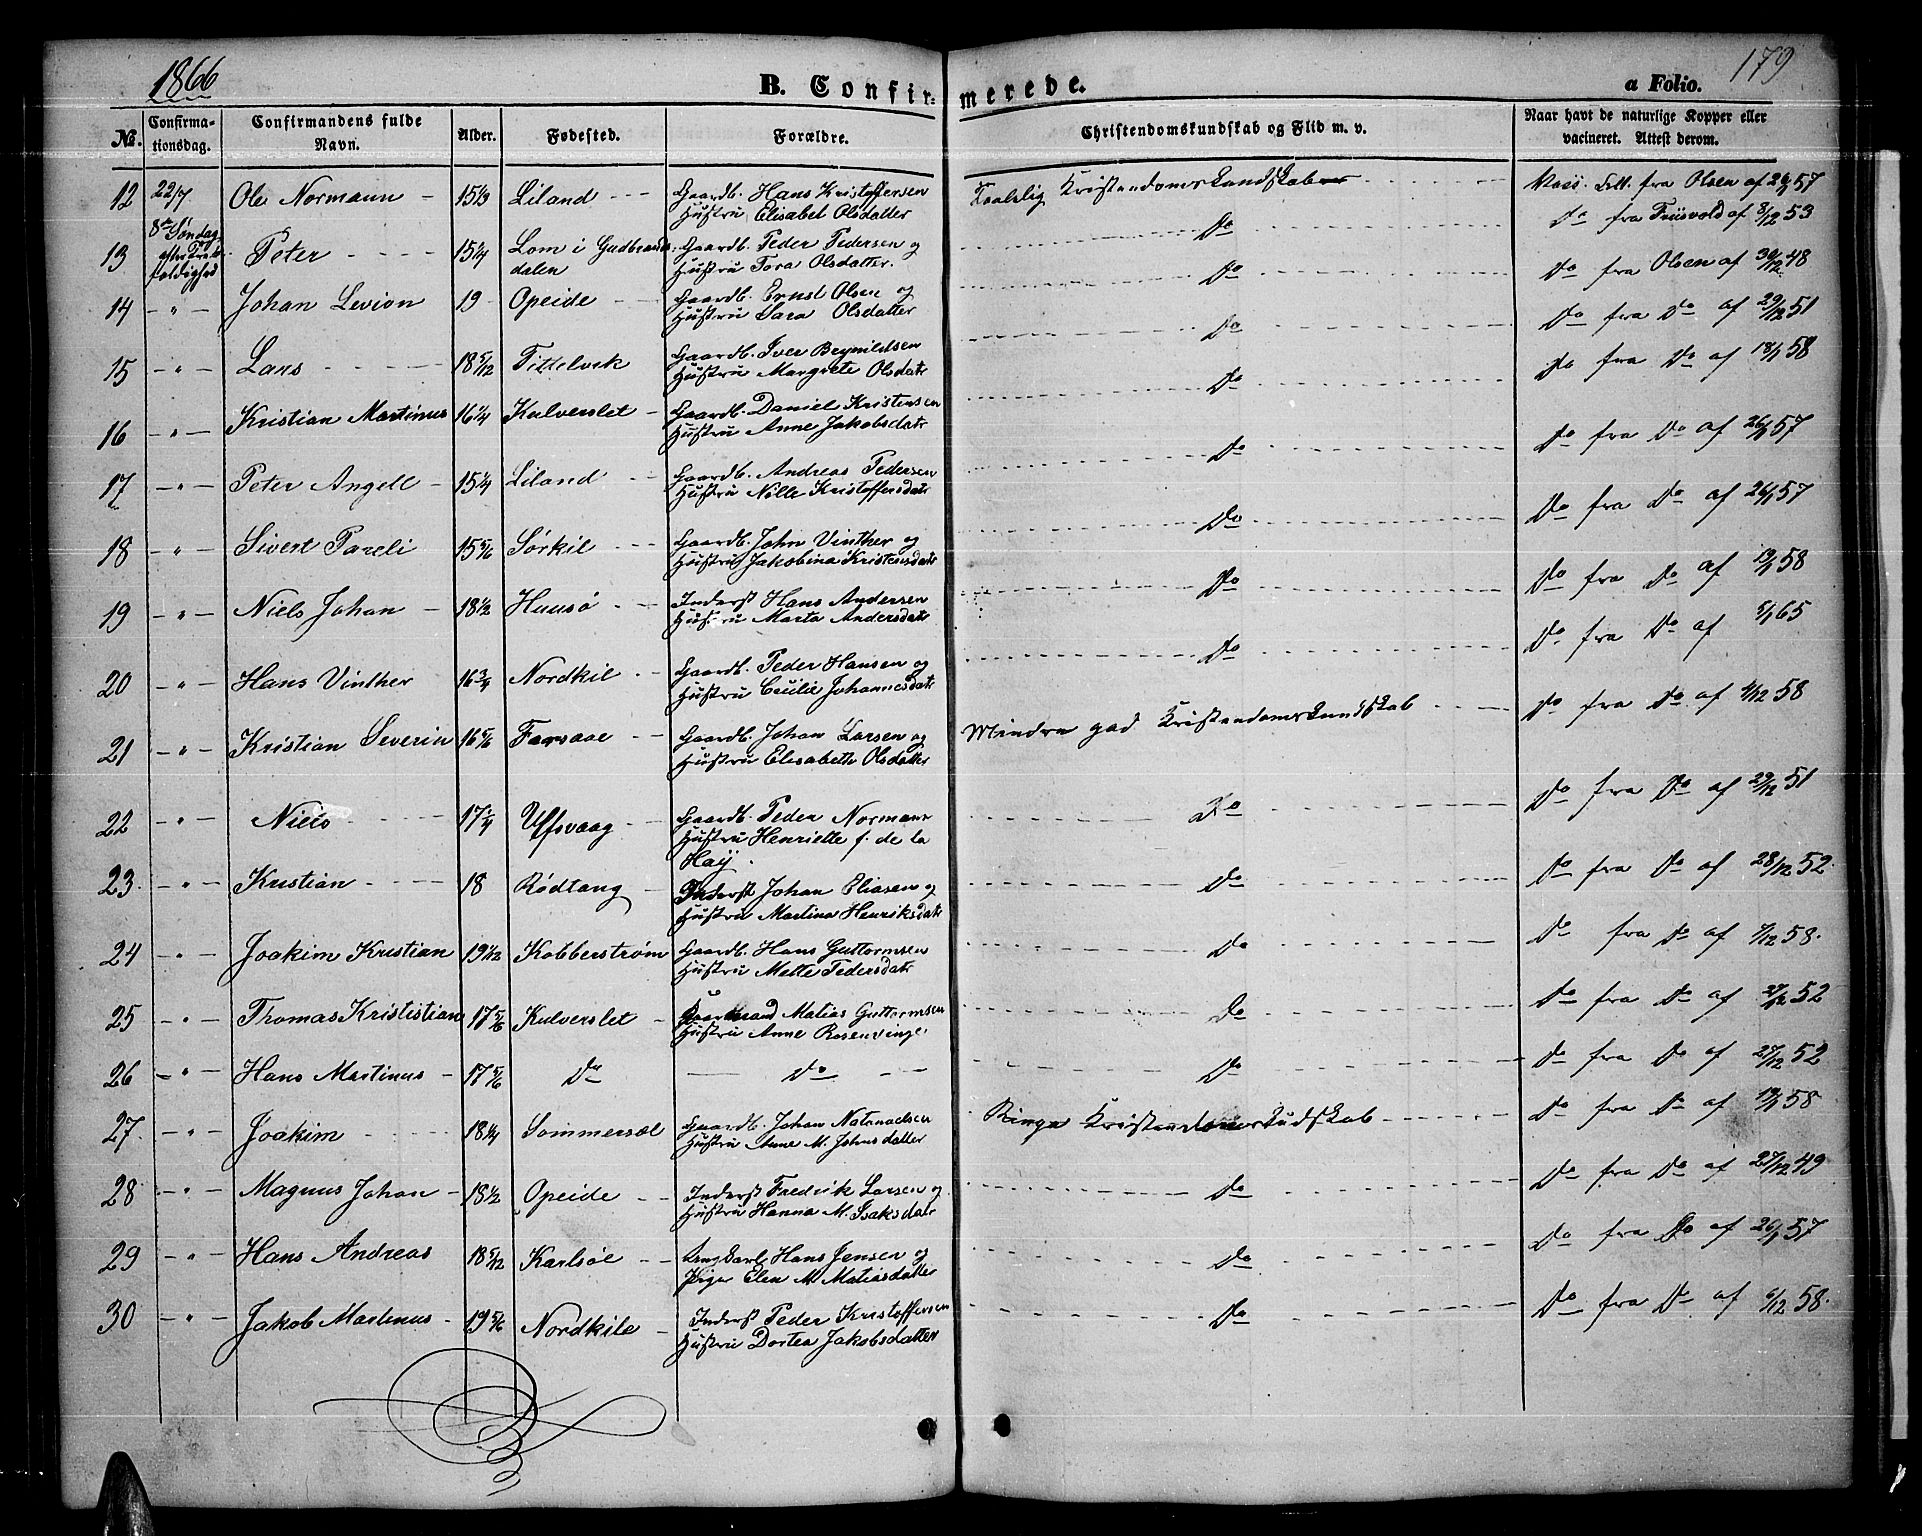 1866
179
B. Confirmerede.
a Folio.
No. Confirmationsdag. Confirmandens fulde Navn. Alder. Fødested. Forældre. Christendomskundskab og Flid m. v. Naar havt de naturlige Kopper eller vacineret. Attest derom.
12 22/7 Ole Normann - 15 1/3 Liland - - Gaardb. Hans Kristoffersen Kristendomskundskab fra Olsen af 57
8de Søndag Hustru Elisabet Olsdatter
13 Peter - - - - 15 1/4 Lom i Gudbrands- Gaardb. Peder Pedersen og Do Do fra af 8/12 53
dalen Hustru Tora Olsdatter.
14 - " - Johan Levion 19 Opeide - - Gaardb. Ernst Olsen og Do Do fra Olsen af 30/12 48
Hustru Sara Olsdatter
15 - " - Lars - - - - 18 5/12 Tittelvik Gaardb. Iver Brynildsen Do Do fra Do af 29/12 51
Hustru Margrete Olsdatr
16 - " - Kristian Martinus 16 1/4 Kulverslet - Gaardb. Daniel Kristensen Do Do fra Do af 58
Hustru Anne Jakobsdatr
17 - " - Peter Angell - 15 1/4 Liland - - Gaardb. Andreas Pedersen Do Do fra Do af 57
Hustru Nille Kristoffersdatr
18 - " - Sivert Pareli 15 5/6 Sørkil - - Gaardb. John Vinther og Do Do fra Do af 57
Hustru Jakobina Kristensdatr
19 - " - Niels Johan - 18 1/2 Huusø - - Inderst Hans Andersen Do Do fra Do af 58
Hustru Marta Andersdatr
20 - " - Hans Vinther 16 3/4 Nordkil - - Gaardb. Peder Hansen og Do Do fra Do af 65
Hustru Cecilie Johannesdatr
21 - " - Kristian Severin 16 5/6 Forsaae - - Gaardb. Johan Larsen og Mindre god Kristendomskundskab Do fra Do af 58
Hustru Elisabeth Olsdatter
22 - " - Niels - - - - 17 1/4 Uffsvaag - - Gaardb. Peder Normann Do Do fra Do af 29/12 51
Hustru Henriette f. de la
Haÿ
23. - " - Kristian - - - - 18 Rødtang - Inderst Johan Eliasen og Do Do fra Do af 28/12 52.
Hustru Martina Henriksdatr
24 - " - Joakim Kristian 19 1/12 Kobberstrøm Gaardb. Hans Guttormsen Do Do fra Do af 7/12 58.
Hustru Mette Pedersdatr
25 - " - Thomas Krististian 17 5/6 Kulverslet - Matias Guttormsen Do Do fra Do af 27/12 52
Hustru Anne Rosenvinge
26 - " - Hans Martinus - 17 5/6 Do - Do - - Do Do fra Do af 27/12 52
27. - " - Joakim - - - - 18 1/4 Sommersæl Gaardb. Johan Natanaelsen Ringe Kristendomskudskab Do fra Do af 58
Hustru Anne M. Johnsdatter
28 - " - Magnus Johan - 18 1/2 Opeide - - Inderst Fredrik Larsen og Do Do fra Do af 27/12 49
Hustru Hanna M. Isaksdatr
29 - " - Hans Andreas 18 5/12 Karlsøe - - Ungkarl Hans Jensen og Do Do fra Do af 57
Pige Elen M. Matiasdatter
30 - " - Jakob Martinus - 19 5/6 Nordkile - Inderst Peder Kristoffersen Do Do fra Do af 6/12 58.
Hustru Dortea Jakobsdatter